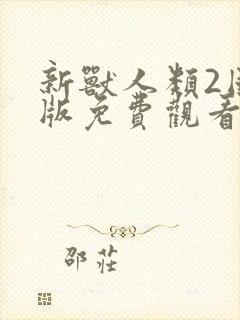 新獸人類2
版免費觀看
邵莊